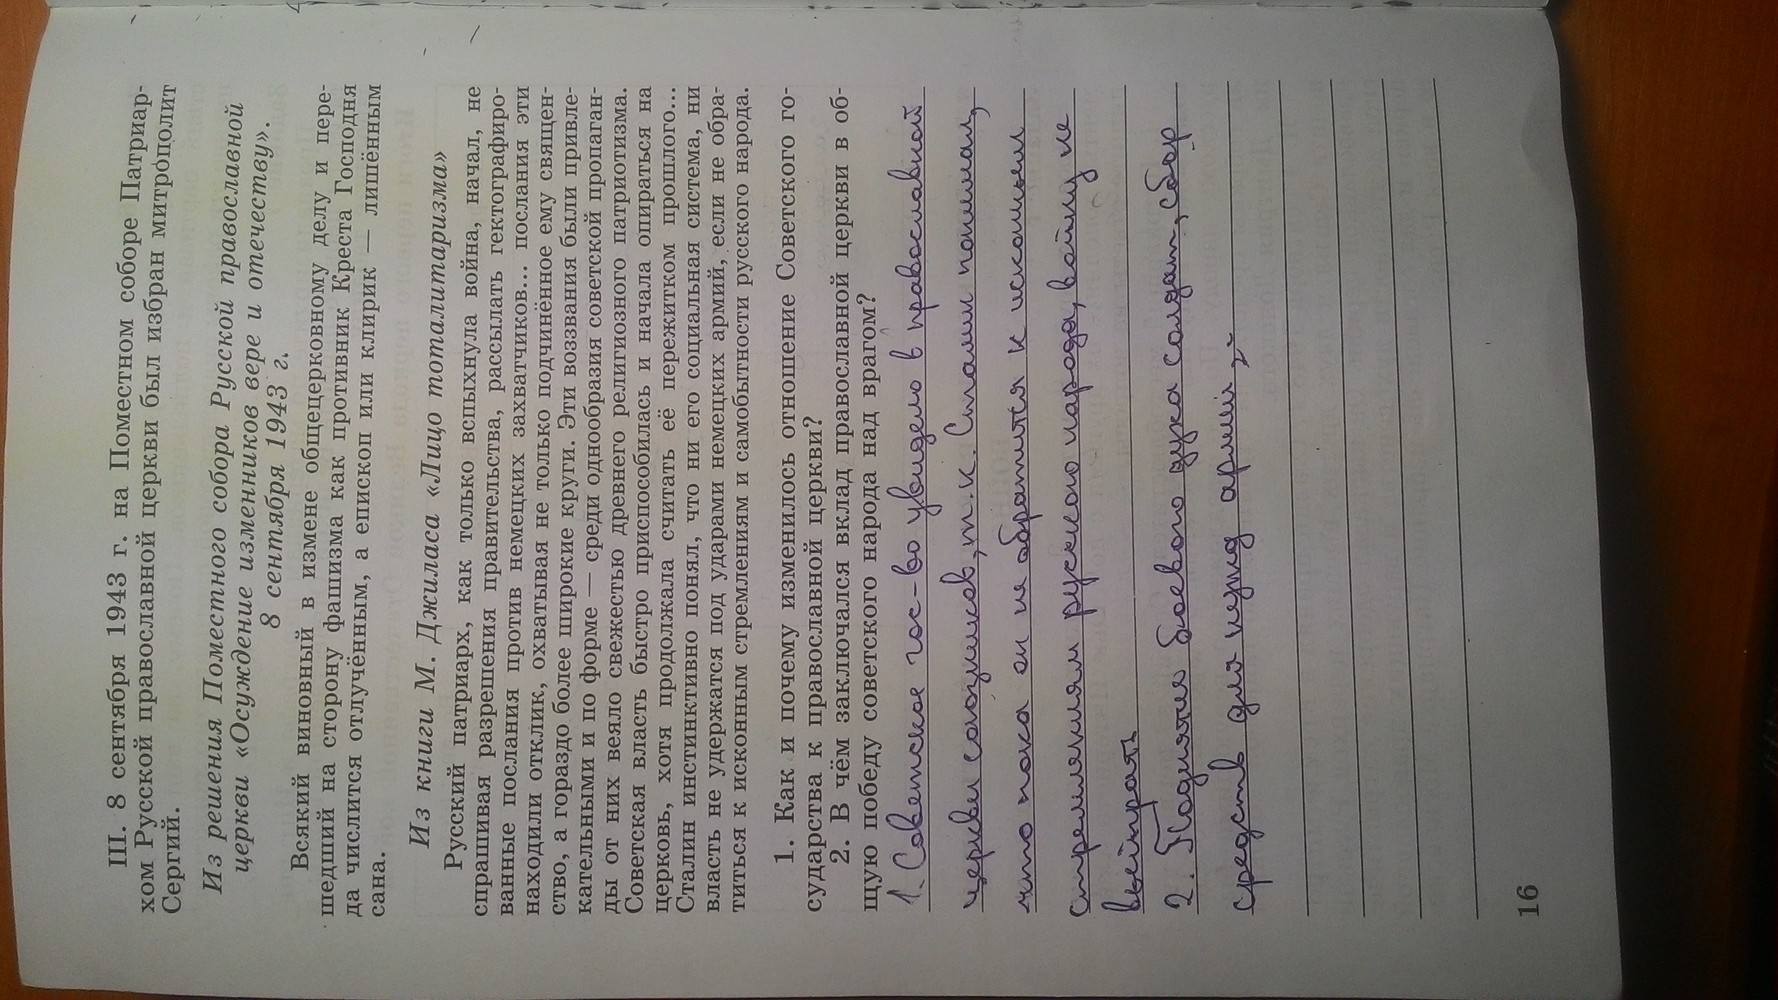 III. 8 сентября 1943 г. на Поместном соборе Патриар-
хом Русской православной церкви был избран митрополит
Сергий.
Из решения Поместного собора Русской православной
церкви «Осуждение изменников вере и отечеству».
8 сентября 1943 г.
Всякий виновный в измене общецерковному делу и пере-
шедший на сторону фашизма как противник Креста Господня
да числится отлучённым, а епископ или клирик — лишённым
сана.
Из книги М. Джиласа «Лицо тоталитаризма»
Русский патриарх, как только вспыхнула война, начал, не
спрашивая разрешения правительства, рассылать гектографиро-
ванные послания против немецких захватчиков... послания эти
находили отклик, охватывая не только подчинённое ему священ-
ство, а гораздо более широкие круги. Эти воззвания были привле-
кательными и по форме — среди однообразия советской пропаган-
ды от них веяло свежестью древнего религиозного патриотизма.
Советская власть быстро приспособилась и начала опираться на
церковь, хотя продолжала считать её пережитком прошлого...
Сталин инстинктивно понял, что ни его социальная система, ни
власть не удержатся под ударами немецких армий, если не обра-
титься к исконным стремлениям и самобытности русского народа.
1. Как и почему изменилось отношение Советского го-
сударства к православной церкви?
2. В чём заключался вклад православной церкви в об-
щую победу советского народа над врагом?
1. Советское гос-во увидело в православной
церкви союзников, т.к. Сталин понимал,
что пока он не обратится к исконным
стремлениям русского народа, войну не
выйграть
2. Поднятие боевого духа солдат, сбор
средств для нужд армии,
16